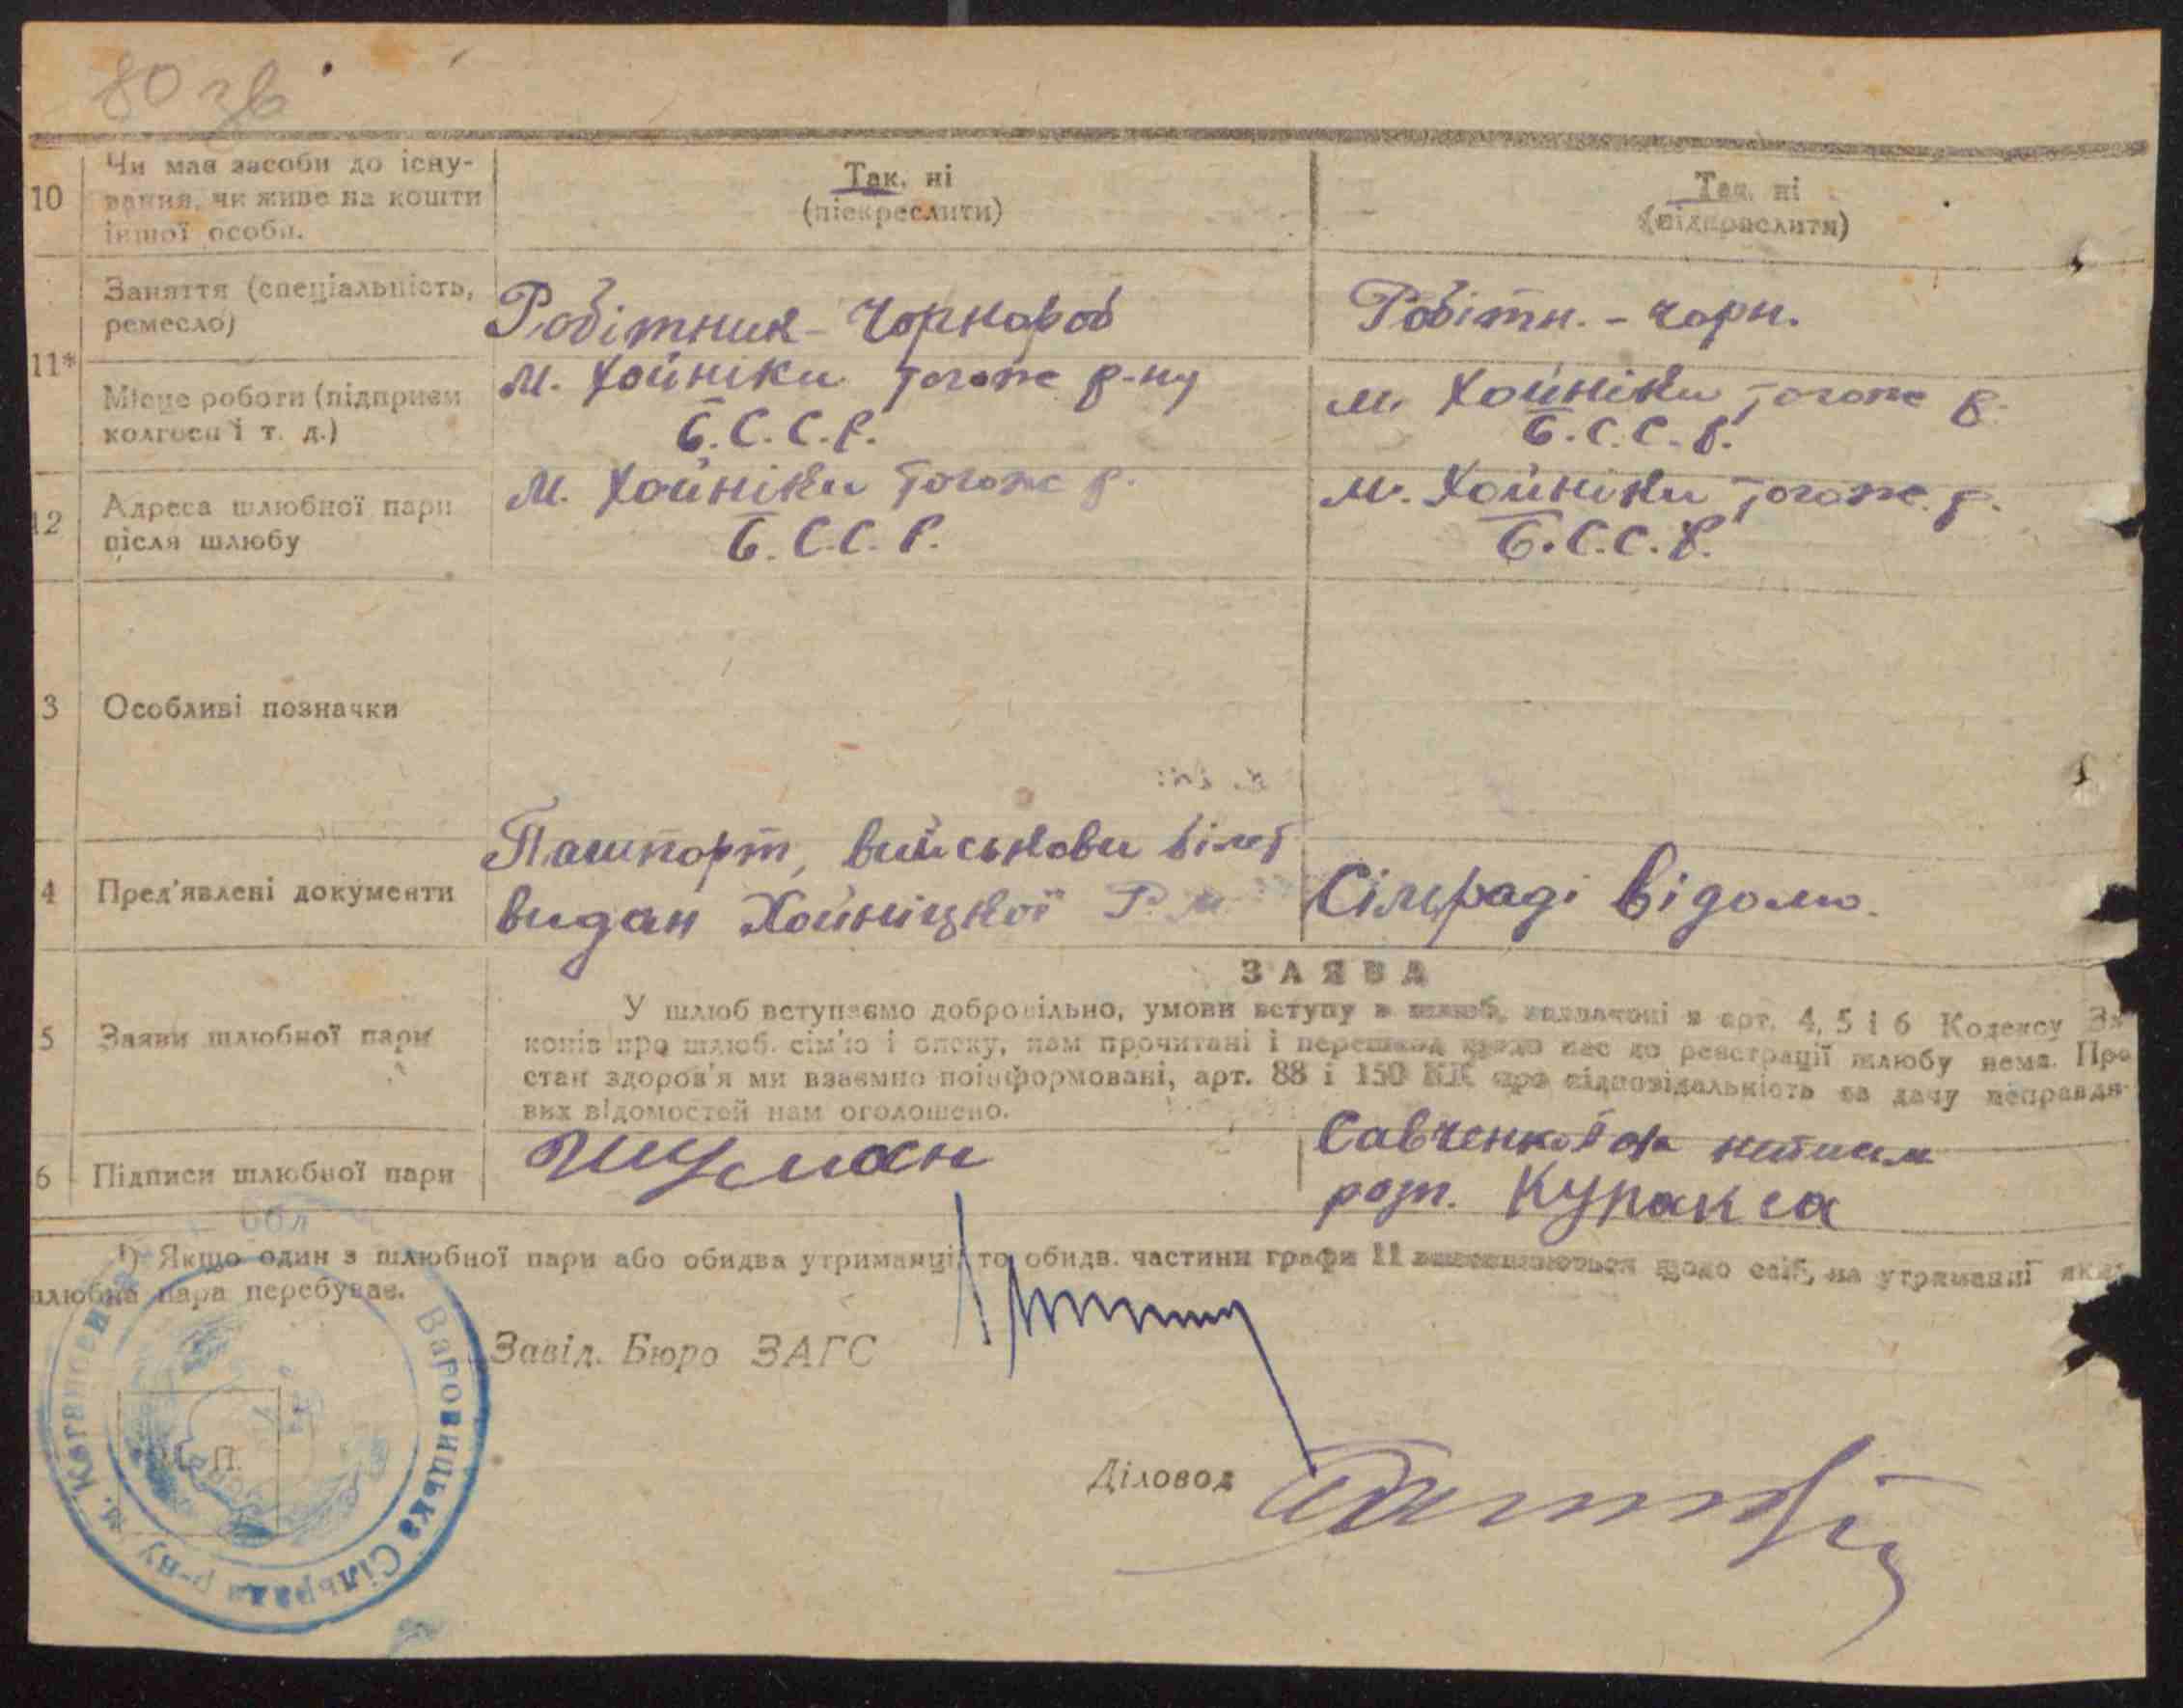 80 зв
10 Чи має засоби до існу-
вання, чи живе на кошти
іншої особи.
Так, ні
(підкреслити)
Так, ні
(підкреслити)
11*
Заняття (спеціальність,
ремесло)
Робітник - Чорнороб
Робітн. - чорн.
Місце роботи (підприєм
колгосп і т. д.)
м. Хойніки тогоже р-ну
Б.С.С.Р.
м. Хойніки тогоже р.
Б.С.С.Р.
12 Адреса шлюбної пари
після шлюбу
м. Хойніки тогоже р.
Б.С.С.Р.
м. Хойніки тогоже р.
Б.С.С.Р.
3 Особливі позначки
4 Пред'явлені документи
Пашпорт, військови білет
видан Хойніцкої Р.
Сільраді відомо.
5 Заяви шлюбної пари
ЗАЯВА
У шлюб вступаємо добровільно, умови вступу в шлюб, зазначені в арт. 4, 5 і 6 Кодексу За
конів про шлюб, сім'ю і опеку, нам прочитані і перешкод щодо нас до реєстрації шлюбу нема. Про
стан здоров'я ми взаємно поінформовані, арт. 88 і 150 КК про відповідальність за дачу неправди
вих відомостей нам оголошено.
6 Підписи шлюбної пари
Шуман
Савченко
розп.
1) Якщо один з шлюбної пари або обидва утриманці, то обидв. частини графи 11 заповнюються щодо осіб, на утриманні яких
шлюбна пара перебуває.
Завід. Бюро ЗАГС
М. П.
Діловод
Варовицька Сільрада
р-ну
м. Кагановича
обл